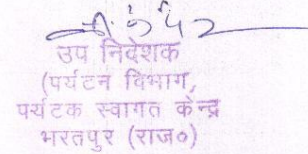 उप निदेशक
(पर्यटन विभाग,
पर्यटक स्वागत केन्द्र
भरतपुर (राज०)